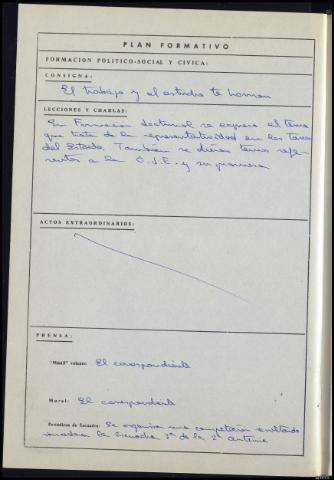 PLAN FORMATIVO
FORMACION POLITICO-SOCIAL Y CIVICA:
CONSIGNA:
El trabajo y el estudio te honran
LECCIONES Y CHARLAS:
En Formacion doctrinal se expuso el tema
que trata de la representatividad en las Tareas
del Estado. También se dieron temas refe-
rentes a la O.J.E. y su promesa
ACTOS EXTRAORDINARIOS:
PRENSA:
"Mástil" volante: El correspondiente
Mural: El correspondiente
Periódicos de Escuadra: Se organiza una competición resultando
ganadora la Escuadra 3ª de la 2ª centuria